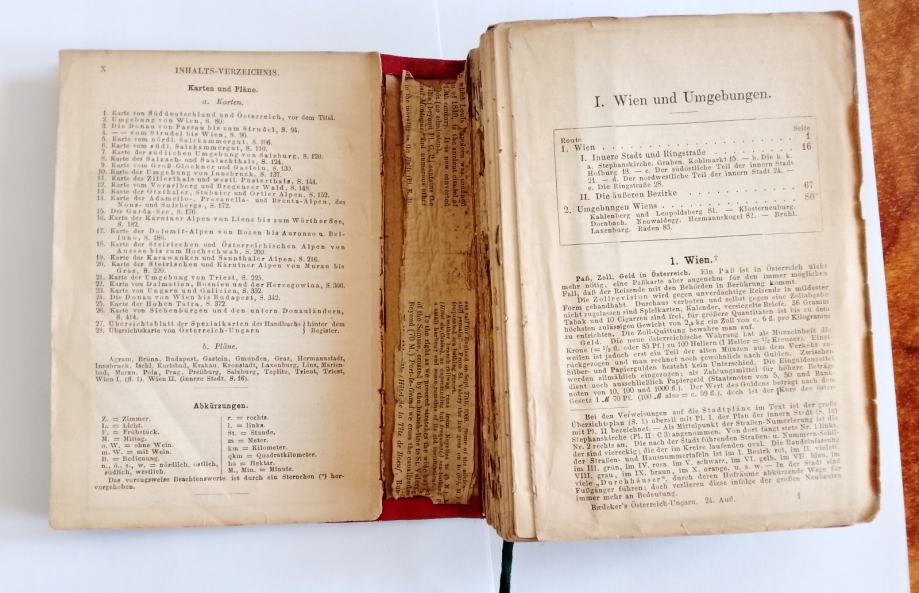 X
INHALTS-VERZEICHNIS.
Karten und Pläne.
a. Karten.
1. Karte von Süddeutschland und Österreich, vor dem Titel.
2. Umgebung von Wien, S. 80.
3. Die Donau von Passau bis zum Strudel, S. 94.
4. — — vom Strudel bis Wien, S. 96.
5. Karte vom nördl. Salzkammergut, S. 106.
6. Karte vom südl. Salzkammergut, S. 110.
7. Karte der südlichen Umgebung von Salzburg, S. 120.
8. Karte des Salzach- und Saalachthals, S. 124.
9. Karte vom Groß-Glockner und Venediger, S. 130.
10. Karte der Umgebung von Innsbruck, S. 137.
11. Karte des Zillerthals und westl. Pusterthals, S. 144.
12. Karte vom Vorarlberg und Bregenzer Wald, S. 148.
13. Karte der Ötzthaler, Stubaier und Ortler Alpen, S. 152.
14. Karte der Adamello-, Presanella- und Brenta-Alpen, des
Nons- und Sulzbergs, S. 172.
15. Der Garda-See, S. 176.
16. Karte der Kärntner Alpen von Lienz bis zum Wörther See,
S. 182.
17. Karte der Dolomit-Alpen von Bozen bis Auronzo u. Bel-
luno, S. 186.
18. Karte der Steirischen und Österreichischen Alpen von
Aussee bis zum Hochschwab, S. 200.
19. Karte der Karawanken und Sannthaler Alpen, S. 216.
20. Karte der Steirischen und Kärntner Alpen von Murau bis
Graz, S. 220.
21. Karte der Umgebung von Triest, S. 225.
22. Karte von Dalmatien, Bosnien und der Herzegowina, S. 306.
23. Karte von Ungarn und Galizien, S. 332.
24. Die Donau von Wien bis Budapest, S. 342.
25. Karte der Hohen Tatra, S. 372.
26. Karte von Siebenbürgen und den untern Donauländern,
S. 414.
27. Übersichtsblatt der Spezialkarten des Handbuchs } hinter dem
28. Übersichtskarte von Österreich-Ungarn } Register.
b. Pläne.
Agram, Brünn, Budapest, Gastein, Gmunden, Graz, Hermannstadt,
Innsbruck, Ischl, Karlsbad, Krakau, Kronstadt, Laxenburg, Linz, Marien-
bad, Meran, Pola, Prag, Preßburg, Salzburg, Teplitz, Trient, Triest,
Wien I. (S. 1), Wien II. (innere Stadt, S. 16).
Abkürzungen.
Z. = Zimmer.
L. = Licht.
F. = Frühstück.
M. = Mittag.
o. W. = ohne Wein.
m. W. = mit Wein.
B. = Bedienung.
n., ö., s., w. = nördlich, östlich,
südlich, westlich.
r. = rechts.
l. = links.
St. = Stunde.
m = Meter.
km = Kilometer.
qkm = Quadratkilometer.
ha = Hektar.
M, Min. = Minute.
Das vorzugsweise Beachtenswerte ist durch ein Sternchen (*) her-
vorgehoben.
I. Wien und Umgebungen.
Route Seite
1. Wien 1
I. Innere Stadt und Ringstraße 16
a. Stephanskirche, Graben, Kohlmarkt 15. — b. Die k. k.
Hofburg 18. — c. Der südöstliche Teil der innern Stadt
21. — d. Der nordwestliche Teil der innern Stadt 24. —
e. Die Ringstraße 28.
II. Die äußeren Bezirke 67
2. Umgebungen Wiens 80
Kahlenberg und Leopoldsberg 81. — Klosterneuburg,
Dornbach, Neuwaldegg, Hermannskogel 82. — Brühl,
Laxenburg, Baden 83.
1. Wien.
Paß, Zoll, Geld in Österreich. Ein Paß ist in Österreich nicht
mehr nötig, eine Paßkarte aber angenehm für den immer möglichen
Fall, daß der Reisende mit den Behörden in Berührung kommt.
Die Zollrevision wird gegen unverdächtige Reisende in mildester
Form gehandhabt. Durchaus verboten und selbst gegen eine Zollabgabe
nicht zugelassen sind Spielkarten, Kalender, versiegelte Briefe. 36 Gramm
Tabak und 10 Cigarren sind frei, für größere Quantitäten ist bis zu dem
höchsten zulässigen Gewicht von 2,8 kg ein Zoll von c. 6 fl. pro Kilogramm
zu entrichten. Die Zoll-Quittung bewahre man auf.
Geld. Die neue österreichische Währung hat als Münzeinheit die
Krone (= ½ fl. oder 85 Pf.) zu 100 Hellern (1 Heller = ½ Kreuzer). Einst-
weilen ist jedoch erst ein Teil der alten Münzen aus dem Verkehr zu-
rückgezogen und man rechnet noch gewöhnlich nach Gulden. Zwischen
Silber und Papiergulden besteht kein Unterschied. Die Einguldenscheine
werden allmählich eingezogen; als Zahlungsmittel für höhere Beträge
dient noch ausschließlich Papiergeld (Staatsnoten von 5, 50 und Bank-
noten von 10, 100 und 1000 fl.). Der Wert des Guldens beträgt nach dem
Gesetz 1 ℳ 70 Pf. (100 ℳ also = c. 59 fl.), doch ist der Kurs desto
Bei den Verweisungen auf die Stadtpläne im Text ist der große
Übersichtsplan (S. 1) überall mit Pl. I, der Plan der innern Stadt (S. 16)
mit Pl. II bezeichnet. — Als Mittelpunkt der Straßen-Numerierung ist die
Stephanskirche (Pl. II: C 3) angenommen. Von dort fängt stets Nr. 1 links,
Nr. 2 rechts an. Die nach der Stadt führenden Straßen- u. Nummern-Schil-
der sind viereckig; die der im Kreise laufenden oval. Die Randeinfassung
der Straßen- und Hausnummertafeln ist im I. Bezirk rot, im II. violett,
im III. grün, im IV. rosa, im V. schwarz, im VI. gelb, im VII. blau, im
VIII. grau, im IX. braun, im X. orange, u. s. w. — In der Stadt sind
viele „Durchhäuser", durch deren Hofräume abkürzende Wege für
Fußgänger führen; doch verlieren diese infolge der großen Neubauten
immer mehr an Bedeutung.
Bædeker's Österreich-Ungarn. 24. Aufl. 1